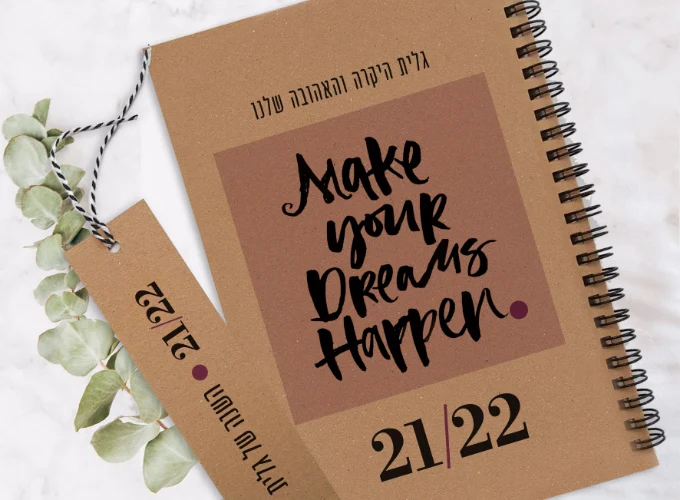 גלית היקרה והאהובה שלנו
Make
your
Dreams
Happen.
21/22
21/22
השנה של גלית